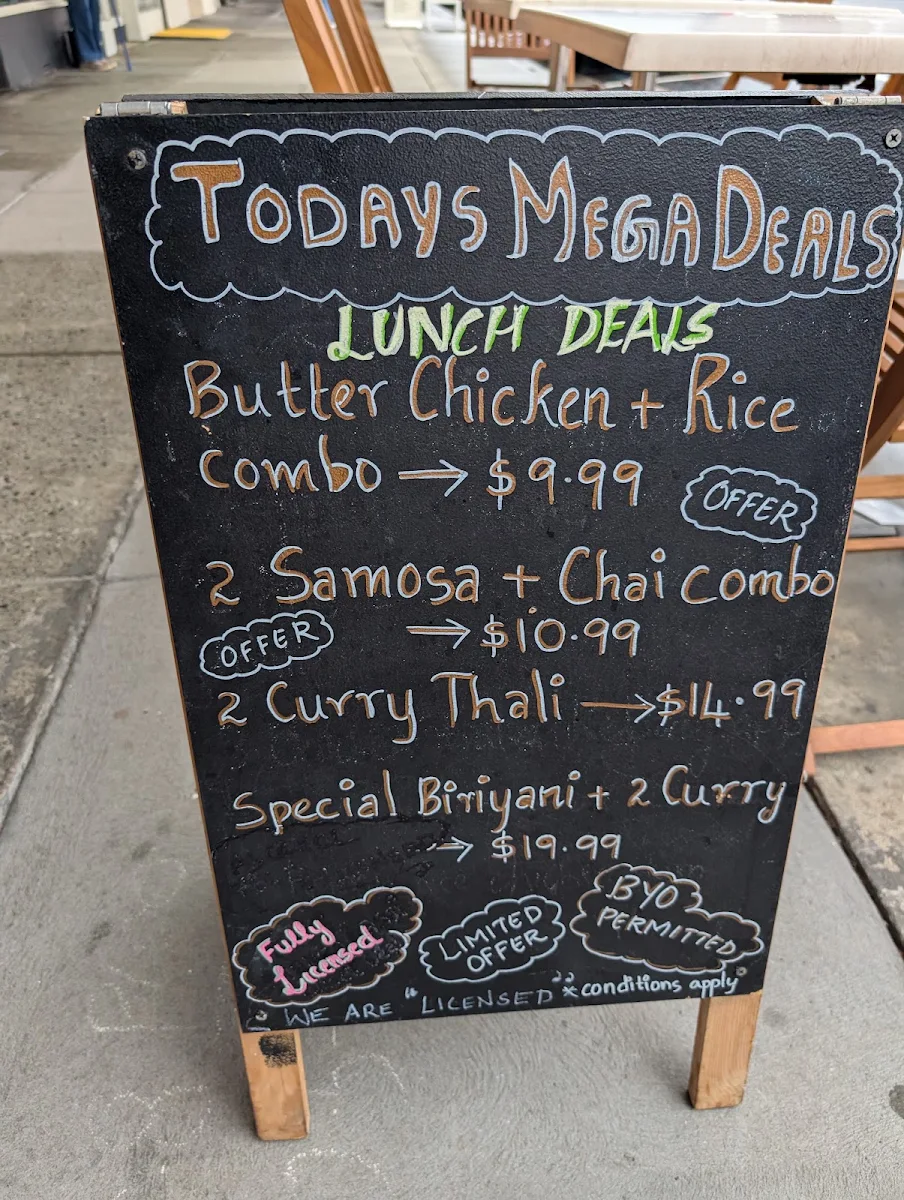 TODAYS MEGA DEALS
LUNCH DEALS
Butter Chicken + Rice
Combo → $9.99
OFFER
2 Samosa + Chai combo
OFFER
→ $10.99
2 Curry Thali → $14.99
Special Biriyani + 2 Curry
→ $19.99
Fully
Licensed
LIMITED
OFFER
BYO
PERMITTED
WE ARE "LICENSED" *conditions apply